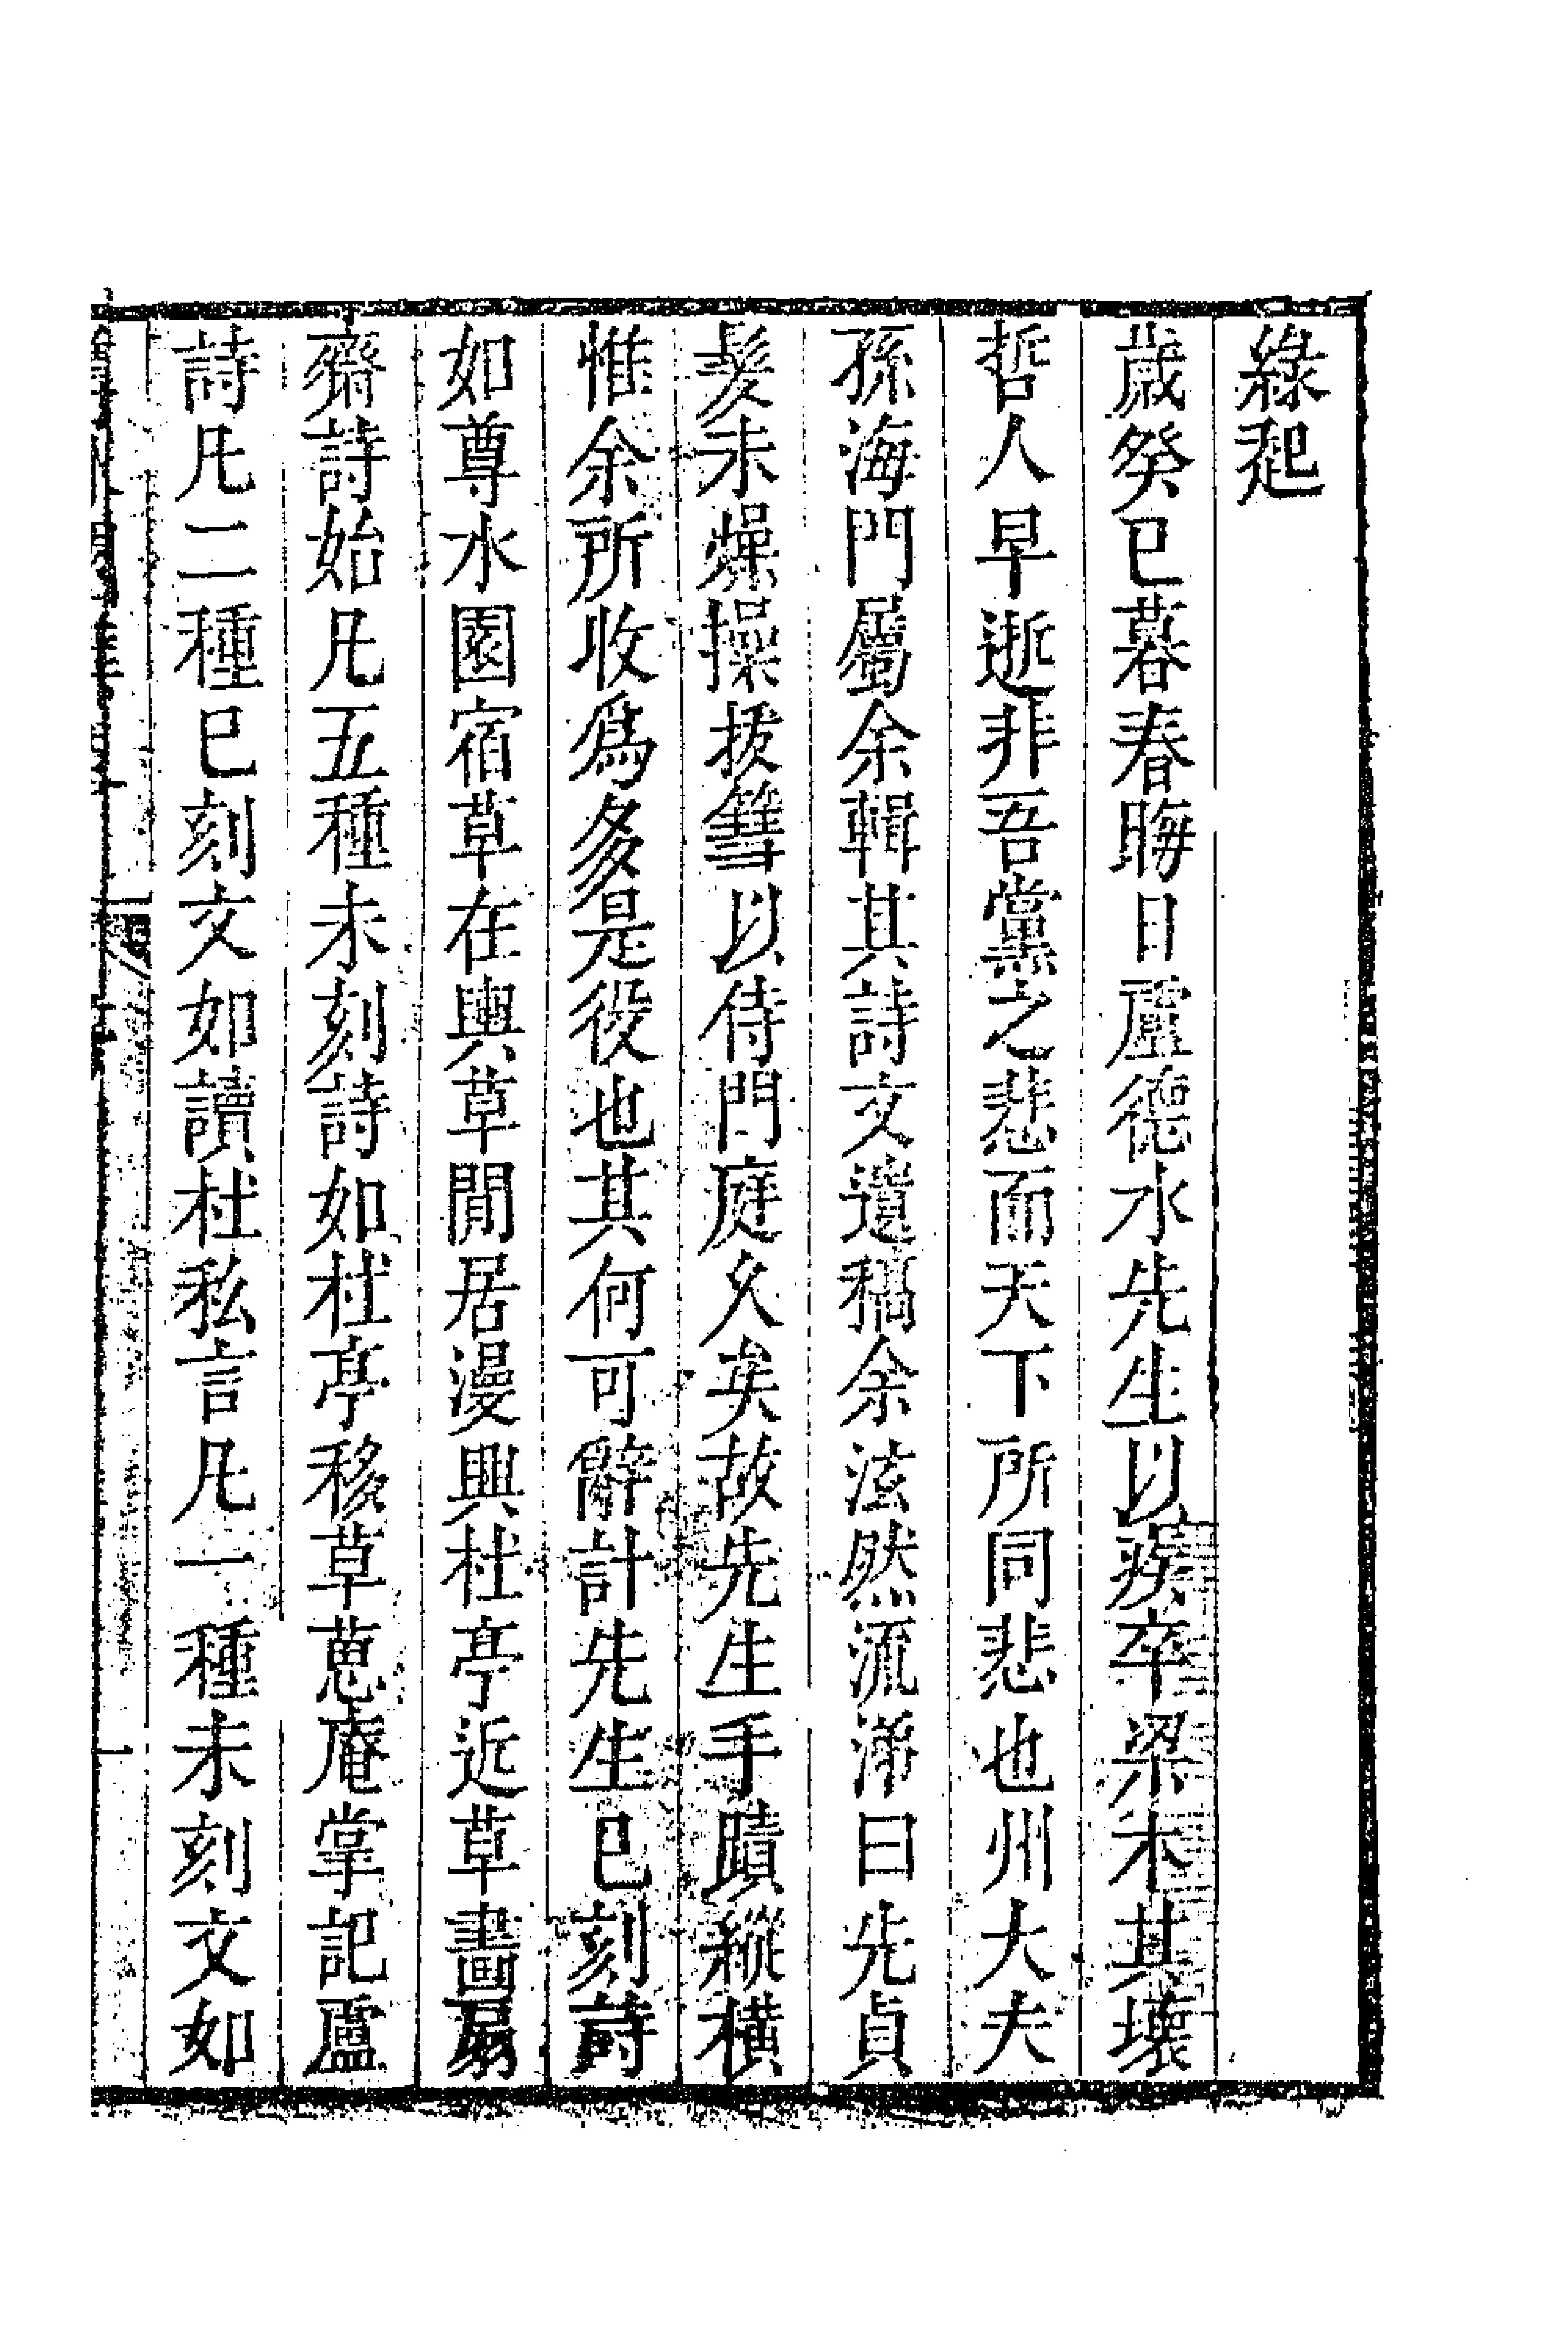 緣起
歲癸巳暮春晦日盧德水先生以疾卒梁木其壞
哲人早逝非吾黨之悲而天下所同悲也州大夫
孫海門屬余輯其詩文遺稿余泫然流涕曰先貞
髮未燥操拔篲以侍門庭久矣故先生手蹟縱橫
惟余所收爲多是役也其何可辭計先生已刻詩
如尊水園宿草在輿草閒居漫興杜亭近草畫扇
齋詩始凡五種未刻詩如杜亭移草蒽庵掌記盧
詩凡二種已刻文如讀杜私言凡一種未刻文如